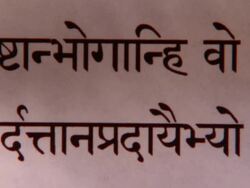 ष्टान्भोगान्हि वो
र्दत्तानप्रदायैभ्यो